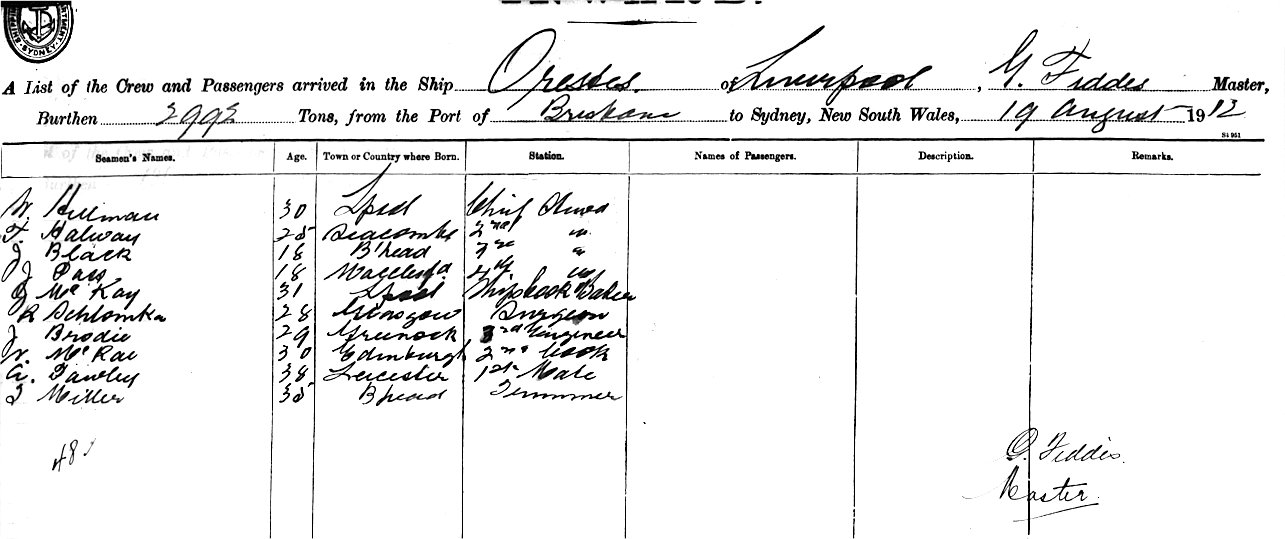 SYDNEY
A List of the Crew and Passengers arrived in the Ship Orestes. of Liverpool, G. Fiddes Master,
Burthen 2992 Tons, from the Port of Brisbane to Sydney, New South Wales, 19 August 1912
S4 951
Seamen's Names. Age. Town or Country where Born. Station. Names of Passengers. Description. Remarks.
W. Hillman 30 L'pool Chief Stewd
F. Halway 25 Seacombe 2nd "
J Black 18 B'head 3rd "
J Pass 18 Macclesfd. 4th "
J McKay 31 L'pool Ships Cook & Baker
R Schlomka 28 Glasgow Surgeon
J Brodie 29 Greenock 3rd Engineer
W. McRae 30 Edinburgh 2nd Cook
A. Tawley 38 Leicester 1st Mate
J Miller 35 B'head Trimmer
48
G. Fiddes.
Master.